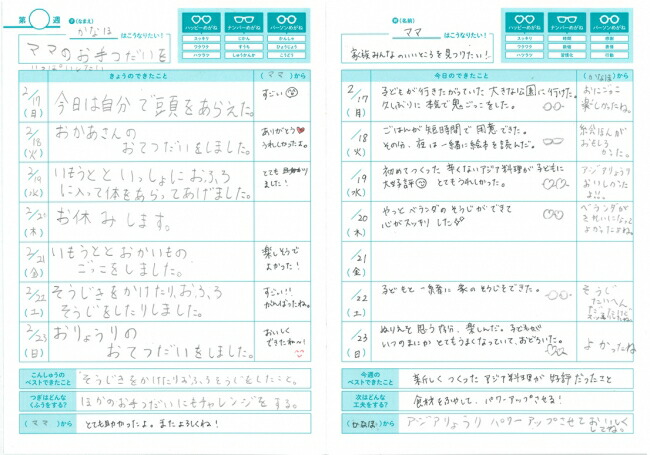 第 週
子(なまえ) かなほ はこうなりたい!
ママのお手つだいを
ハッピーめがね
ナンバーめがね
パーソンめがね
スッキリ じかん かんしゃ
ワクワク すうち ひょうじょう
ハラハラ しゅうかんか こうどう
きょうのできたこと
(ママ)から
2/17(月) 今日は自分で頭をあらえた。
すごい
2/18(火) おかあさんの
おてつだいをしました。
ありがとう
うれしかったよ。
2/19(水) いもうとといっしょにおふろ
に入って体をあらってあげました。
とても助かり
ました!
2/20(木) お休みします。
2/21(金) いもうととおかいもの
ごっこをしました。
楽しそうで
よかった!
2/22(土) そうじきをかけたり、おふろ
そうじをしたりしました。
すごい!!
がんばったね。
2/23(日) おりょうりの
おてつだいをしました。
おいしく
できたね〜!
こんしゅうの
ベストできたこと
そうじきをかけたりおふろそうじをしたこと。
つぎはどんな
くふうをする?
ほかのお手つだいにもチャレンジをする。
(ママ)から
とても助かったよ。またよろしくね!
(名前) ママ はこうなりたい!
家族みんなのいいところを見つけたい!
ハッピーめがね
ナンバーめがね
パーソンめがね
スッキリ 時間 感謝
ワクワク 数値 表情
習慣化 行動
今日のできたこと
(かなほ)から
2/17(月) 子どもが行きたがっていた大きな公園に行けた。
久しぶりに本気で鬼ごっこをした。
おにごっこ
楽しかったね。
18(火) ごはんが短時間で用意できた。
その分、夜は一緒に絵本を読んだ。
絵ほんが
おもしろ
かった。
19(水) 初めてつくった辛くないアジア料理が子どもに
大好評 とてもうれしかった。
アジアりょうり
おいしかった
よ!!
20(木) やっとベランダのそうじができて
心がスッキリした
ベランダが
きれいになって
よかったよね。
21(金)
22(土) 子どもと一緒に家のそうじをできた。
そうじ
たいへん
23(日) ぬりえを思う存分、楽しんだ。子どもが
いつのまにかとてもうまくなっていて、おどろいた。
よかったね
今週の
ベストできたこと
新しくつくったアジア料理が好評だったこと
次はどんな
工夫をする?
食材をふやして、パワーアップさせる!
(かなほ)から
アジアりょうりパワーアップさせておいしく
してね。